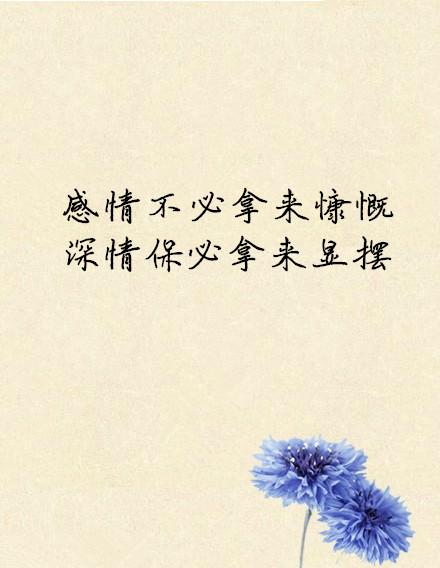 感情不必拿来慷慨
深情保必拿来显摆